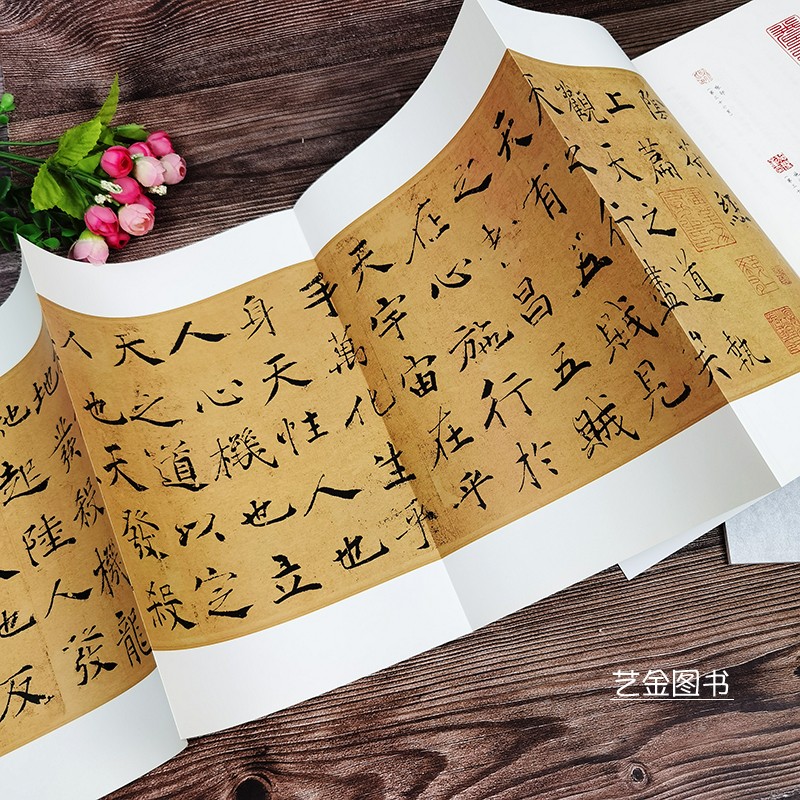 陰符經
上篇
觀天之道執
天之行盡矣
天有五賊見
之者昌五賊
在心施行於
天宇宙在乎
手萬化生乎
身天性人也
人心機也立
天之道以定
人也天發殺
發殺機龍
起陸人發
地反
艺金图书